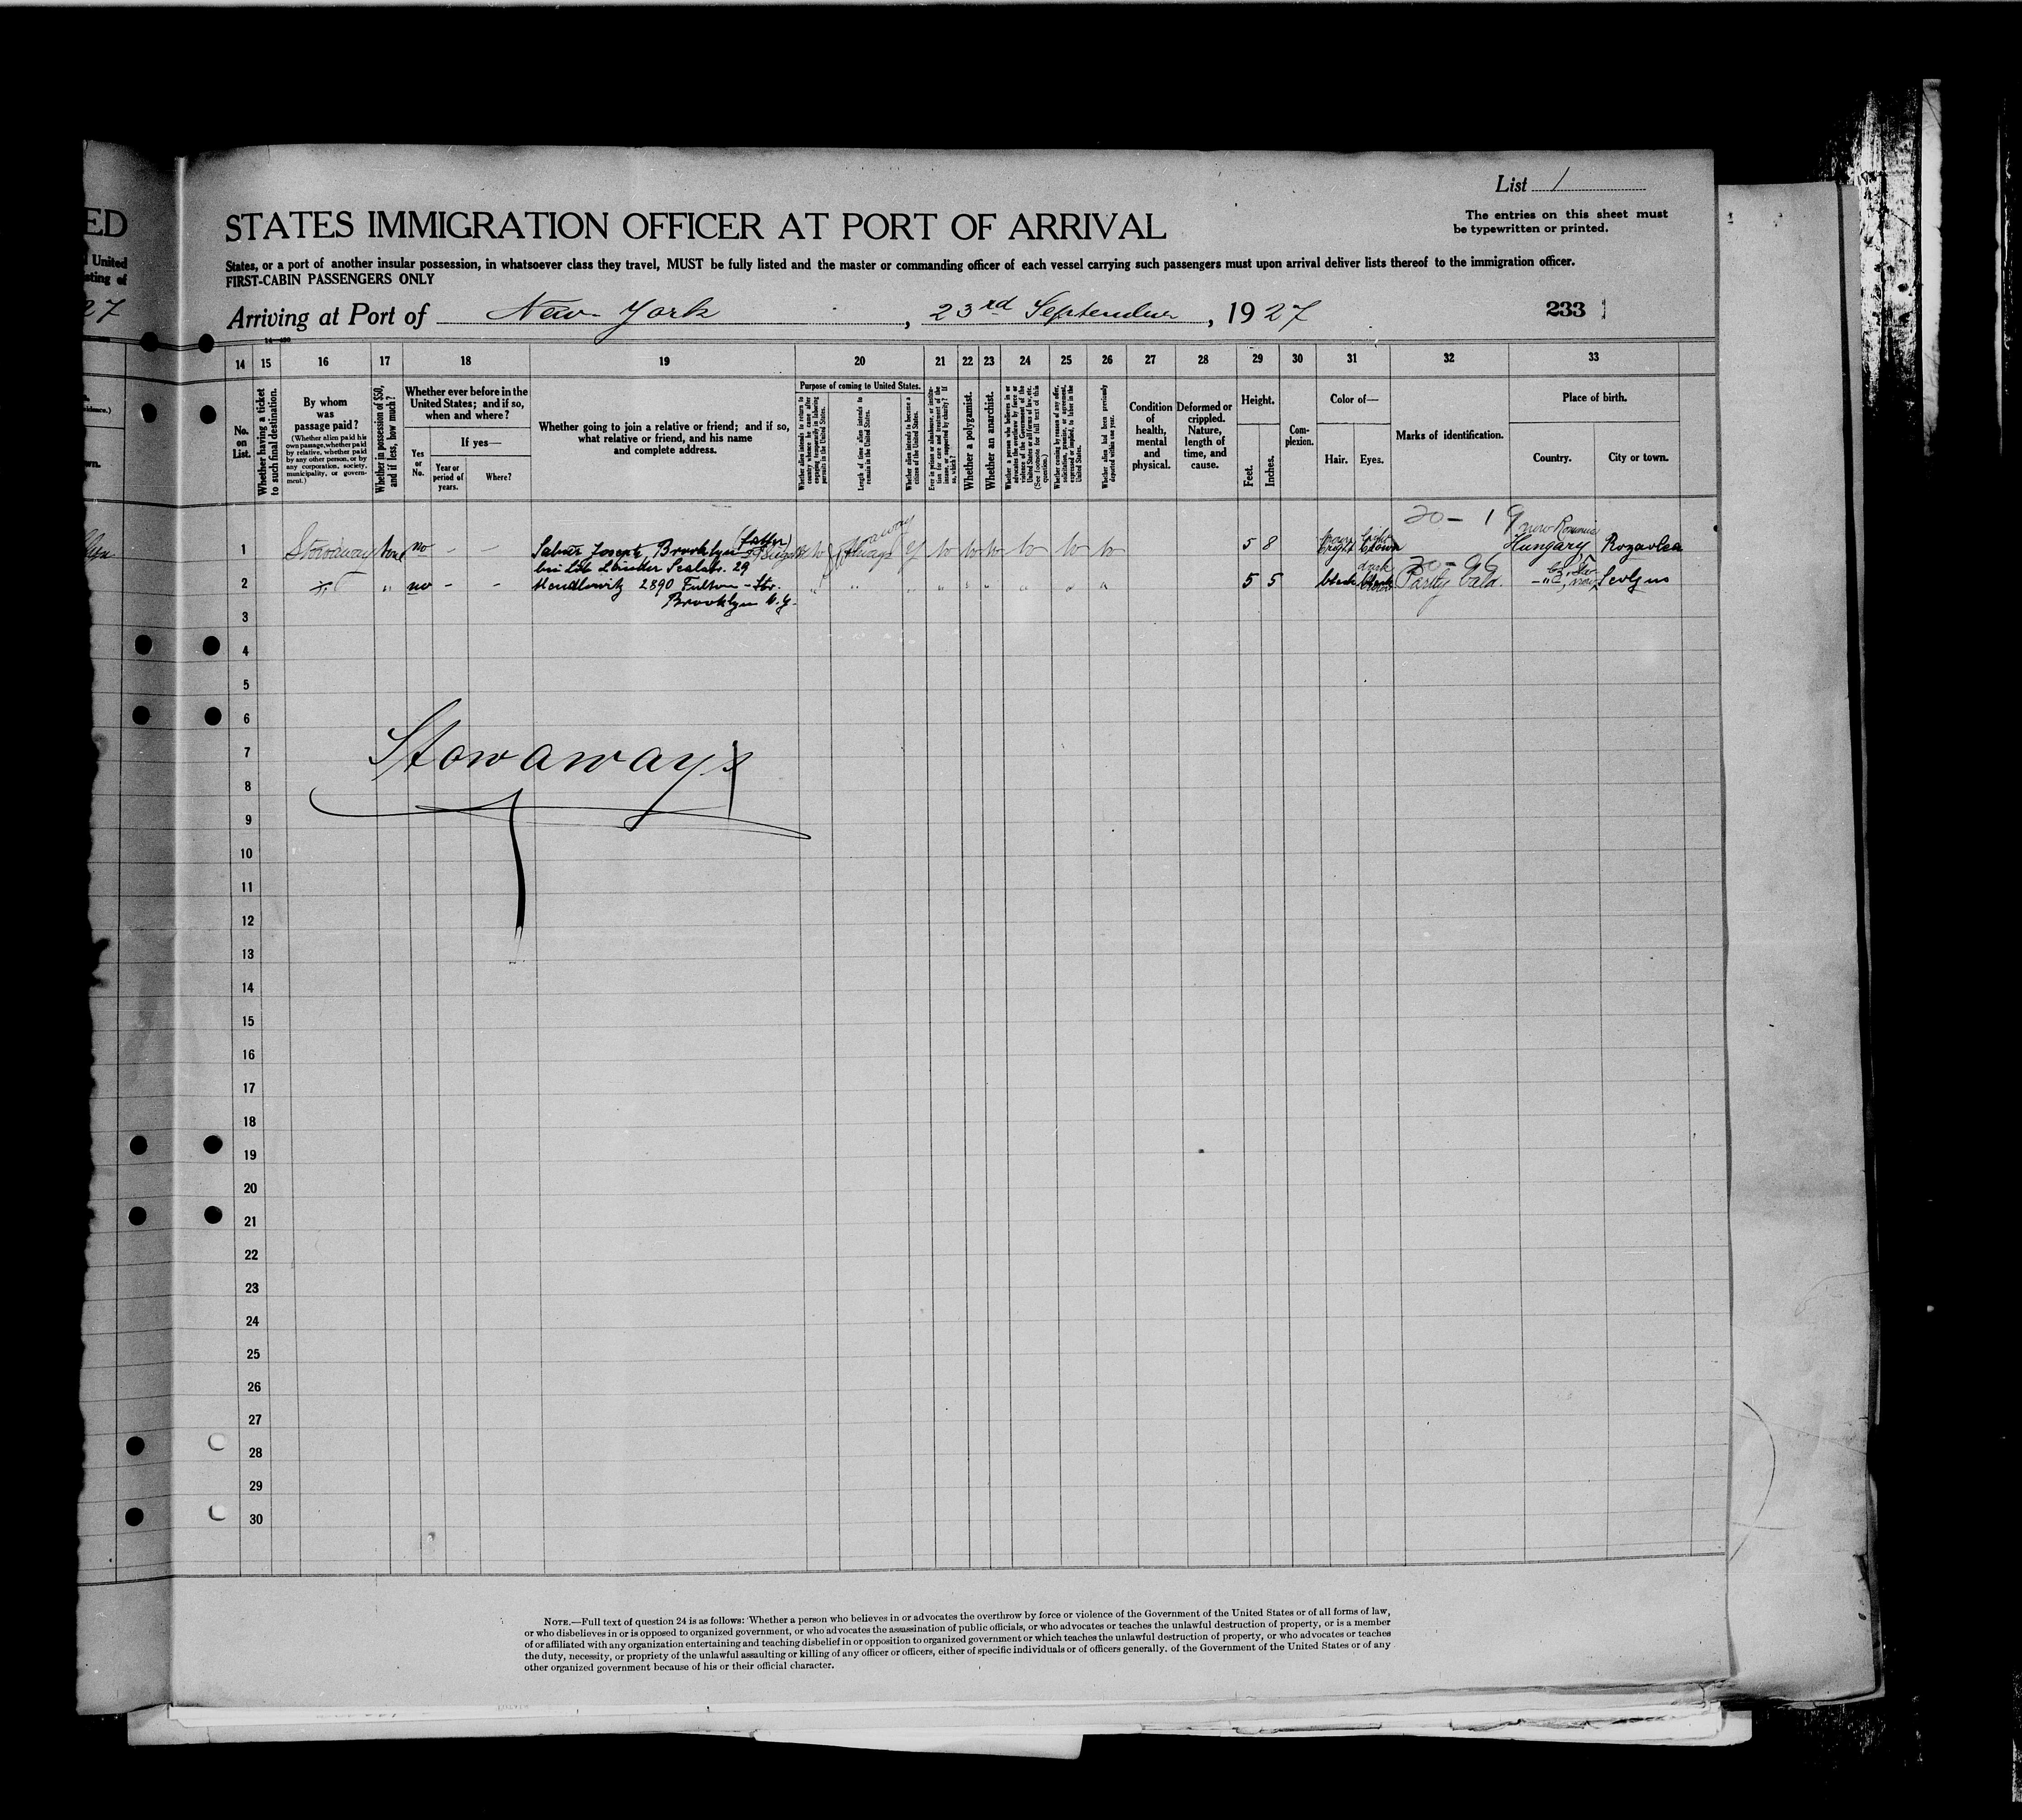 List 1
ED
STATES IMMIGRATION OFFICER AT PORT OF ARRIVAL
The entries on this sheet must
be typewritten or printed.
United
sting of
States, or a port of another insular possession, in whatsoever class they travel, MUST be fully listed and the master or commanding officer of each vessel carrying such passengers must upon arrival deliver lists thereof to the immigration officer.
FIRST-CABIN PASSENGERS ONLY
27
Arriving at Port of New York, 23rd September, 1927
233
14 15 16 17 18 19 20 21 22 23 24 25 26 27 28 29 30 31 32 33
No. on List.
Whether having a ticket to such final destination.
By whom was passage paid?
(Whether alien paid his own passage, whether paid by relative, whether paid by any other person, or by any corporation, society, municipality, or government.)
Whether in possession of $50, and if less, how much?
Whether ever before in the United States; and if so, when and where?
Yes or No.
If yes—
Year or period of years.
Where?
Whether going to join a relative or friend; and if so, what relative or friend, and his name and complete address.
Purpose of coming to United States.
Whether alien intends to return to country whence he came after engaging temporarily in laboring pursuits in the United States.
Length of time alien intends to remain in the United States.
Whether alien intends to become a citizen of the United States.
Ever in prison or almshouse, or institution for care and treatment of the insane, or supported by charity? If so, which?
Whether a polygamist.
Whether an anarchist.
Whether a person who believes in or advocates the overthrow by force or violence of the Government of the United States or all forms of law, etc. (See footnote for full text of this question.)
Whether coming by reason of any offer, solicitation, promise, or agreement, expressed or implied, to labor in the United States.
Whether alien had been previously deported within one year.
Condition of health, mental and physical.
Deformed or crippled. Nature, length of time, and cause.
Height.
Feet.
Inches.
Complexion.
Color of—
Hair.
Eyes.
Marks of identification.
Place of birth.
Country.
City or town.
20 - 19
1 Stowaway no - - Joseph Brooklyn (father) 5 8 Hungary Rozavlea
29
2 " no - - Mendlowitz 2890 Fulton - Str. 5 5 black dark Partly bald
Brooklyn N.Y.
3
4
5
6
7
Stowaways
8
9
10
11
12
13
14
15
16
17
18
19
20
21
22
23
24
25
26
27
28
29
30
NOTE.—Full text of question 24 is as follows: Whether a person who believes in or advocates the overthrow by force or violence of the Government of the United States or of all forms of law,
or who disbelieves in or is opposed to organized government, or who advocates the assassination of public officials, or who advocates or teaches the unlawful destruction of property, or is a member
of or affiliated with any organization entertaining and teaching disbelief in or opposition to organized government or which teaches the unlawful destruction of property, or who advocates or teaches
the duty, necessity, or propriety of the unlawful assaulting or killing of any officer or officers, either of specific individuals or of officers generally. of the Government of the United States or of any
other organized government because of his or their official character.